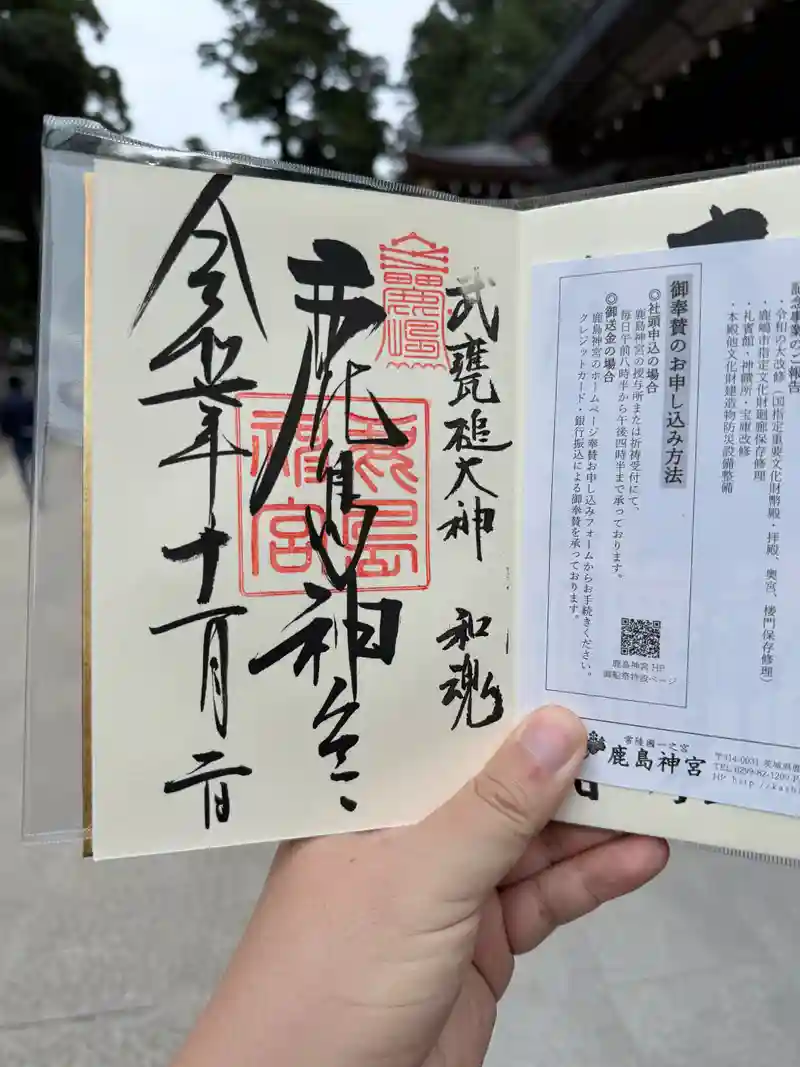 武甕槌大神 和魂
鹿島神宮
令和七年十一月二日
鹿島神宮
・令和の大改修(国指定重要文化財幣殿・拝殿、奥宮、楼門保存修理)
・鹿嶋市指定文化財廻廊保存修理
・礼賓館・神饌所・宝庫改修
・本殿他文化財建造物防災設備整備
御奉賛のお申し込み方法
◎社頭申込の場合
鹿島神宮の授与所または祈祷受付にて、
毎日午前八時半から午後四時半まで承っております。
◎御送金の場合
鹿島神宮のホームページ奉賛お申し込みフォームからお手続きください。
クレジットカード・銀行振込による御奉賛を承っております。
鹿島神宮 HP
常陸國一之宮
鹿島神宮
〒314-0031 茨城県鹿
TEL 0299-82-1209
HP http://kash